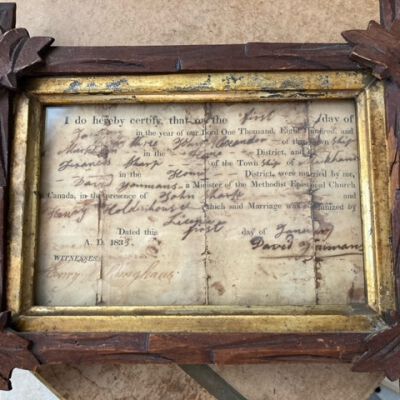 I do hereby certify, that on the first day of
in the year of our Lord One Thousand, Eight Hundred, and
three John of the Town ship
Markham in the Home District, and
Frances Sharp of the Town ship of Markham
in the Home District, were married by me,
David Youmans a Minister of the Methodist Episcopal Church
Canada, in the presence of John Sharp and
Henry Holderhouse which said Marriage was solemnized by
License
Dated this first day of January
A. D. 183
David Youmans
WITNESSES
Henry